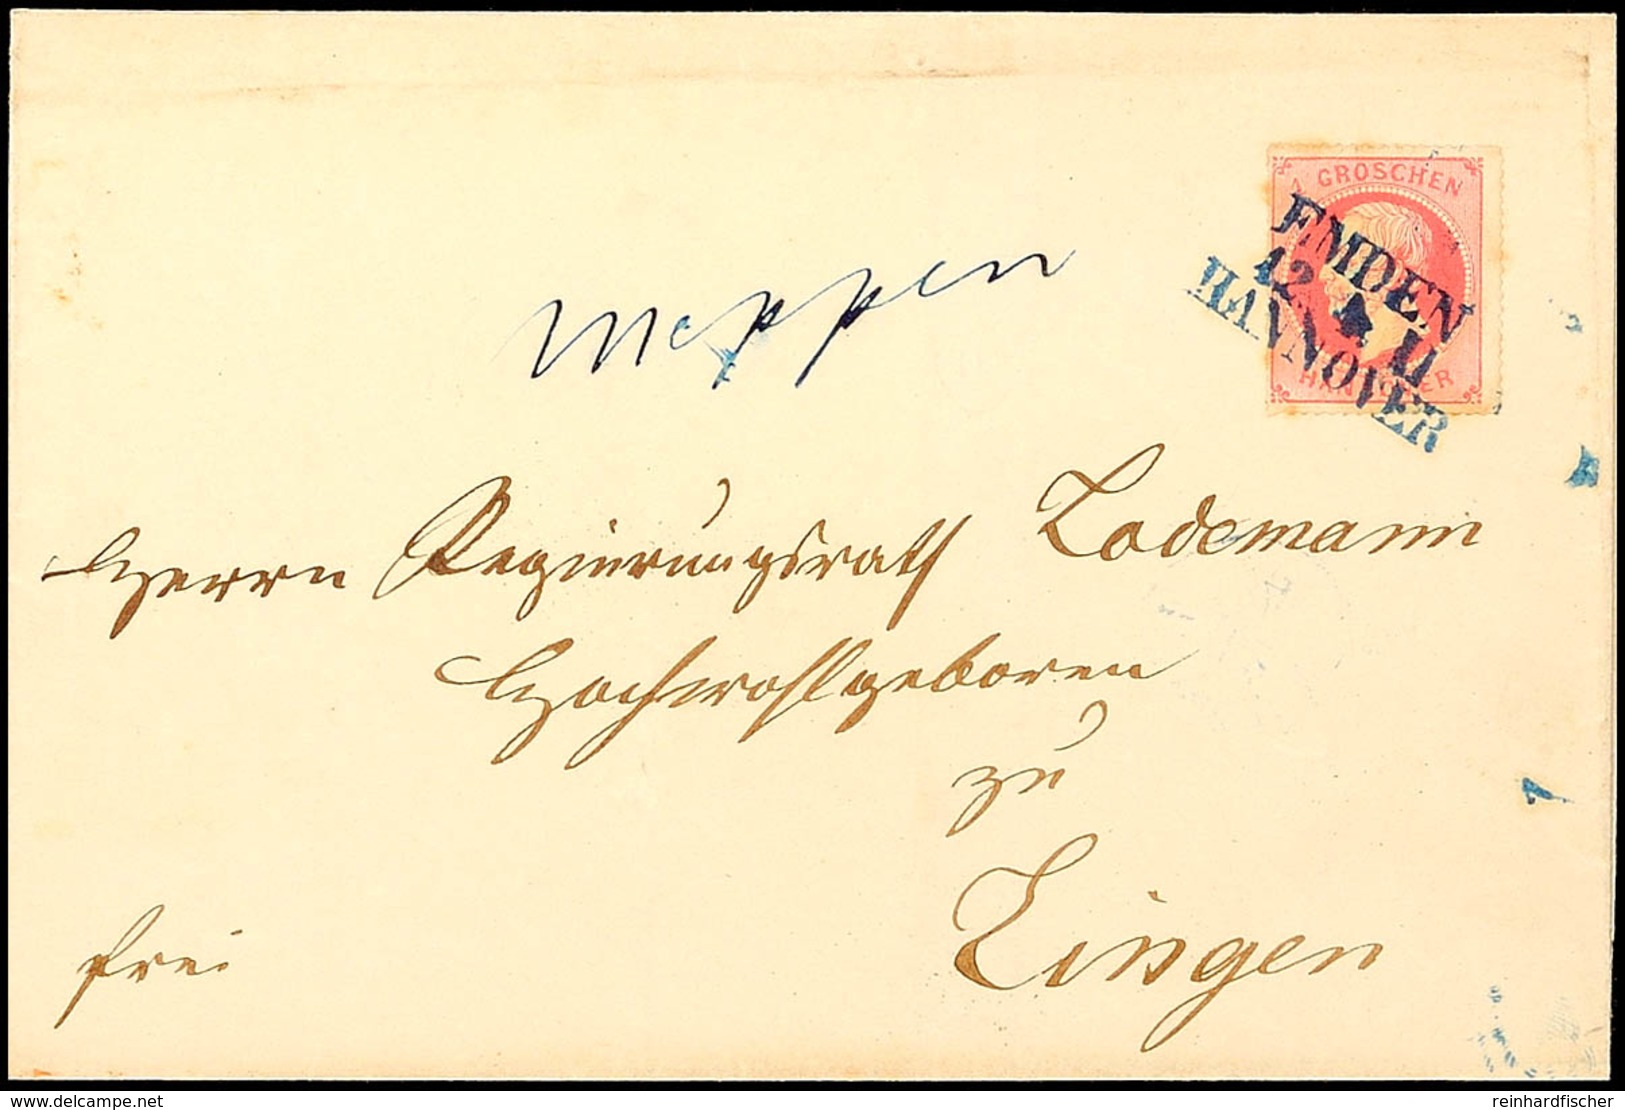 1 GROSCHEN
HANNOVER
EMDEN
12 4 II
HANNOVER
Meppen
Herrn Regierungsrath Lodemann
Hochwohlgeboren
zu
Lingen
frei
www.delcampe.net
reinhardfischer